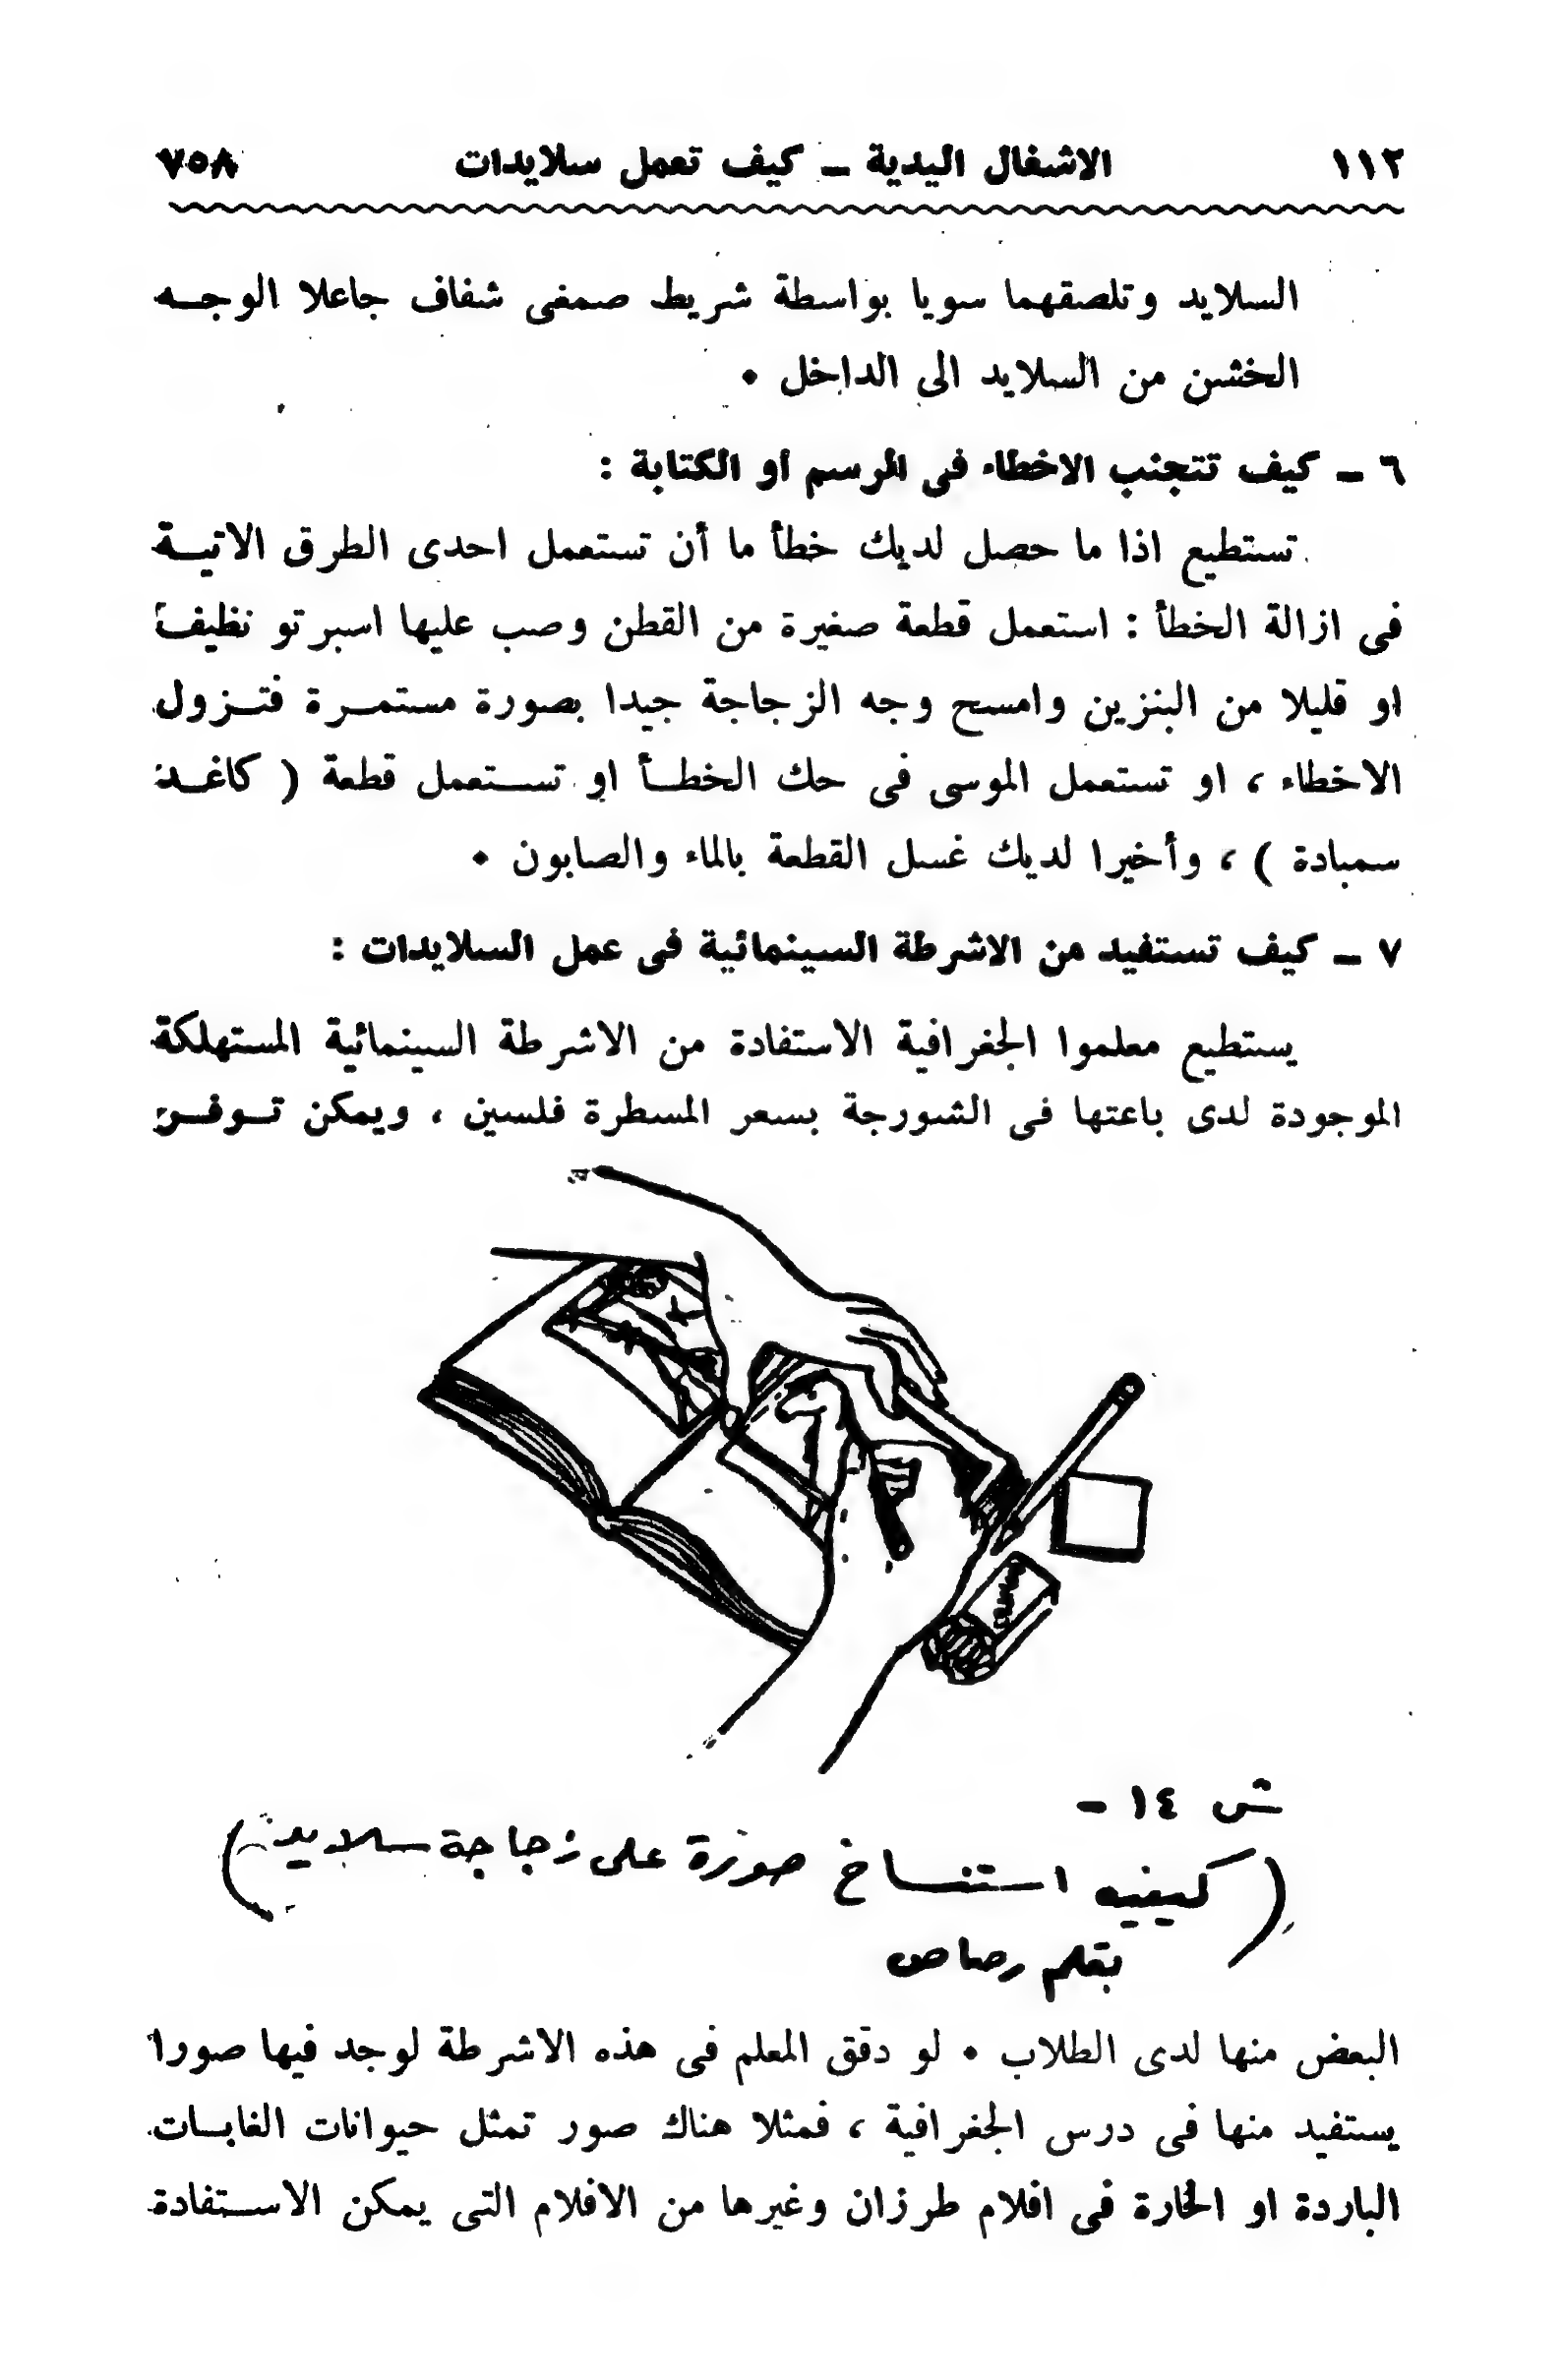 ١١٢ الاشغال اليدية ــ كيف تعمل سلايدات ٧٥٨
السلايد وتلصقهما سويا بواسطة شريط صمغى شفاف جاعلا الوجــه
الخشن من السلايد الى الداخل ٠
٦ ــ كيف تتجنب الاخطاء فى الرسم او الكتابة :
تستطيع اذا ما حصل لديك خطأ ما أن تستعمل احدى الطرق الاتيــة
فى ازالة الخطأ : استعمل قطعة صغيرة من القطن وصب عليها اسبرتو نظيف
او قليلا من البنزين وامسح وجه الزجاجة جيدا بصورة مستمــرة فتــزول
الاخطاء ، او تستعمل الموسى فى حك الخطــأ او تســتعمل قطعة ( كاغــد
سمبادة ) ، وأخيرا لديك غسل القطعة بالماء والصابون ٠
٧ ــ كيف تستفيد من الاشرطة السينمائية فى عمل السلايدات :
يستطيع معلموا الجغرافية الاستفادة من الاشرطة السينمائية المستهلكة
الموجودة لدى باعتها فى الشورجة بسعر المسطرة فلسين ، ويمكن تــوفــر
ش ١٤ -
( كيفيه استنساخ صورة على زجاجة سلايد )
بقلم رصاص
البعض منها لدى الطلاب ٠ لو دقق المعلم فى هذه الاشرطة لوجد فيها صورا
يستفيد منها فى درس الجغرافية ، فمثلا هناك صور تمثل حيوانات الغابــات
الباردة او الحارة فى افلام طرزان وغيرها من الافلام التى يمكن الاســتفادة